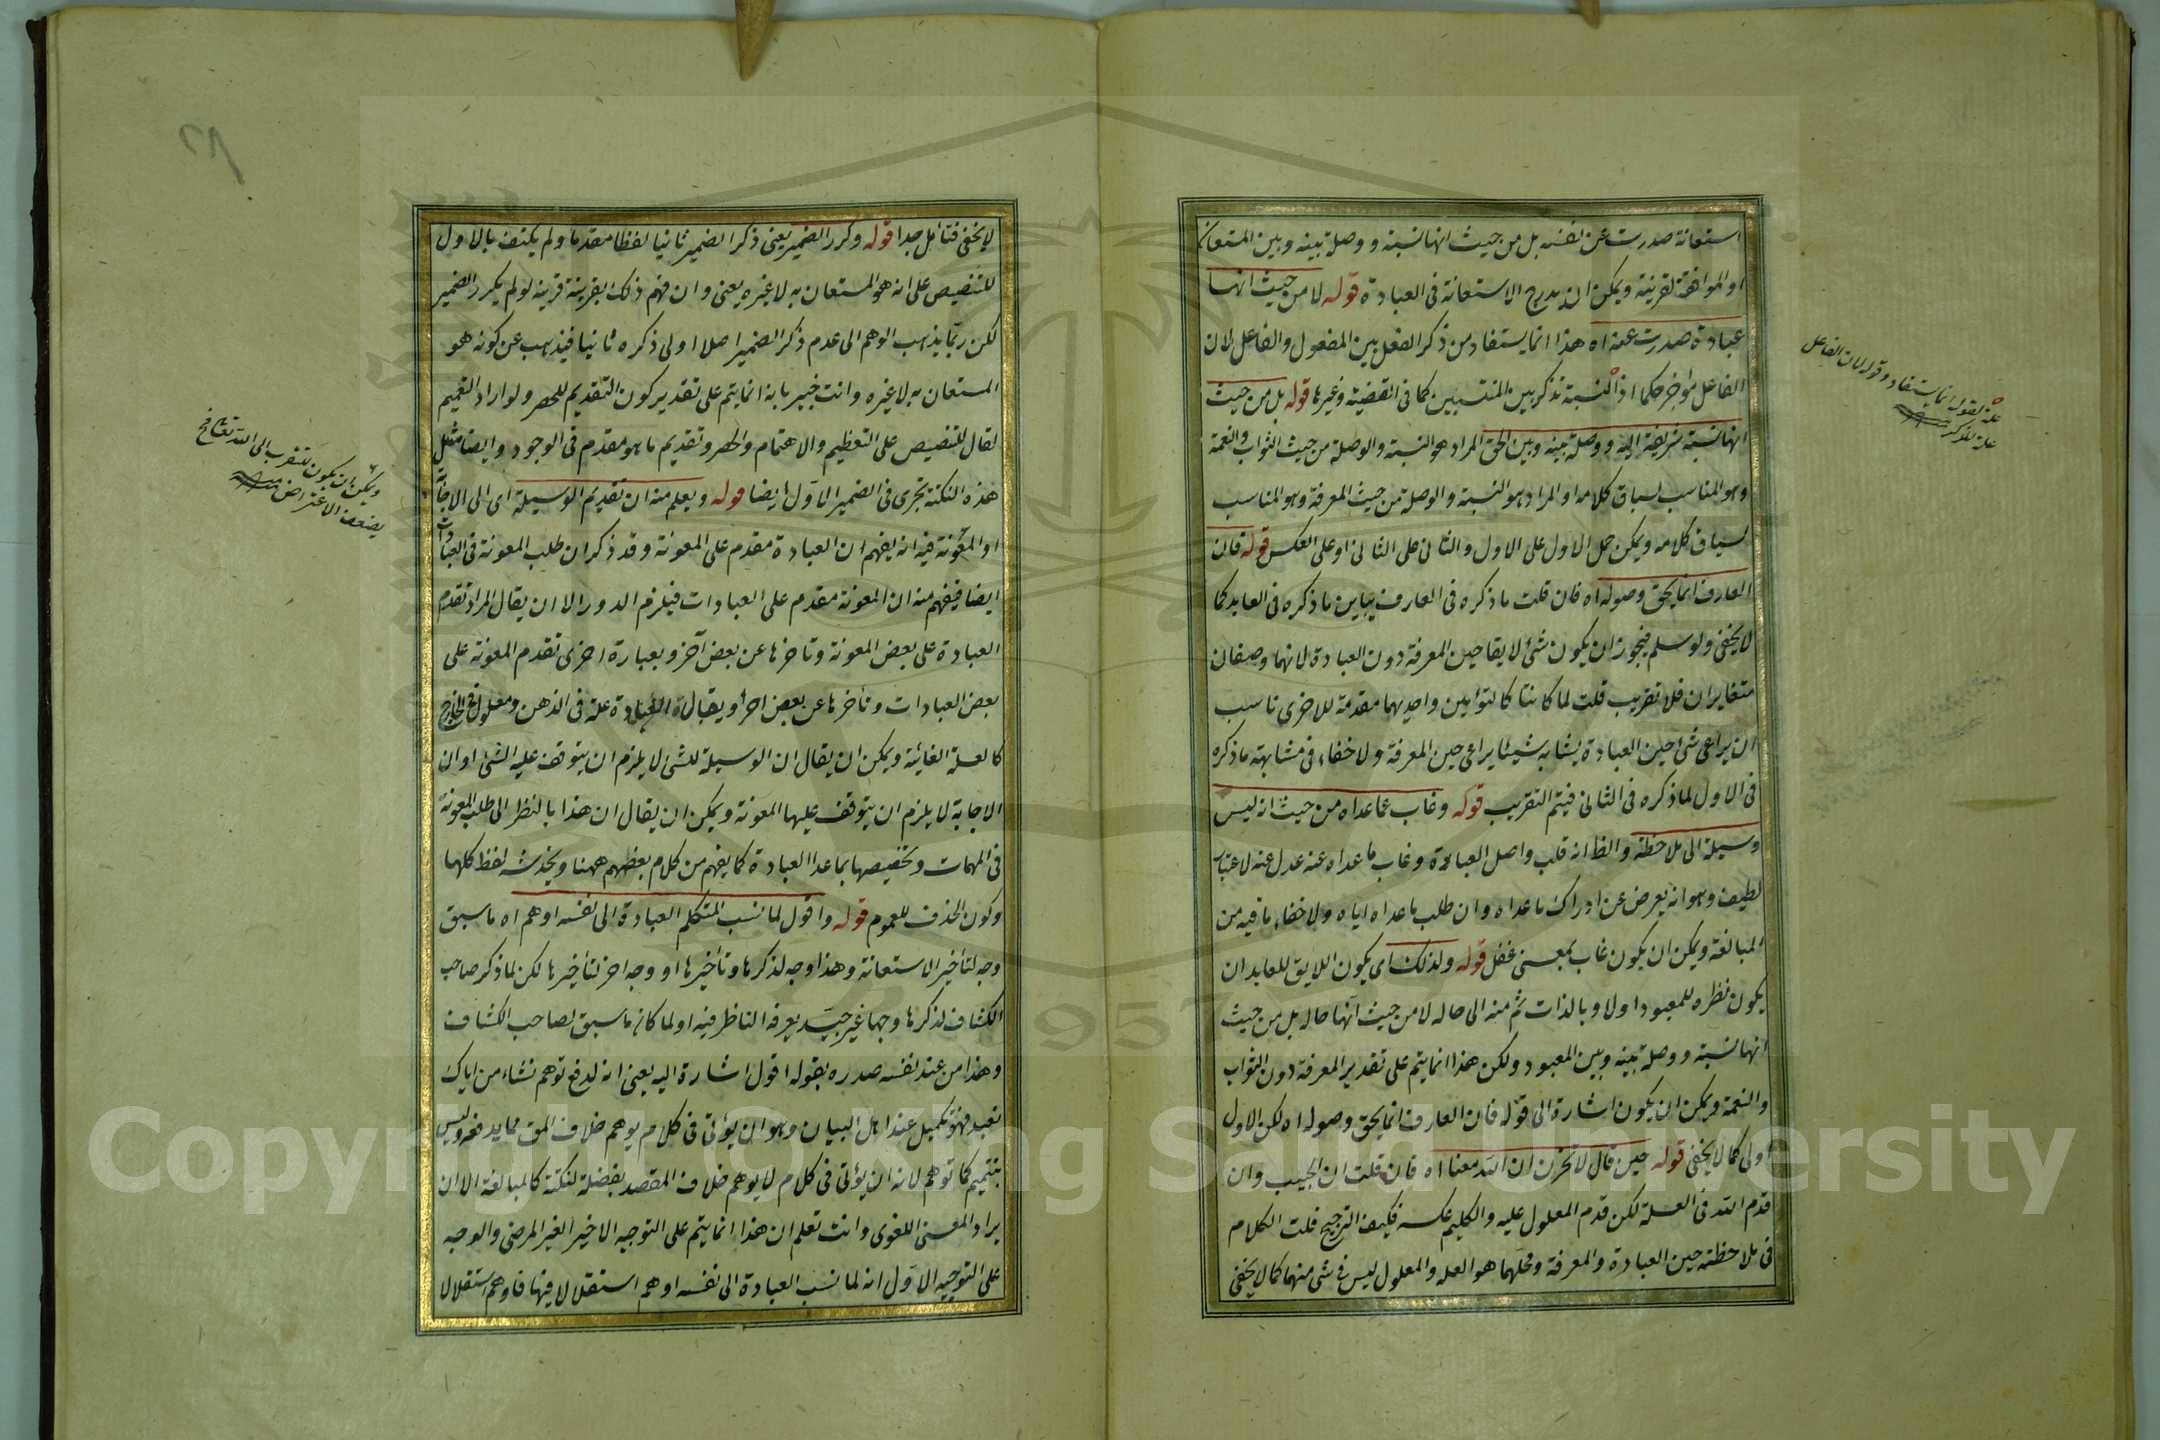 استعانة صدرت عن نفسه بل من حيث انها نسبة ووصلة بينه وبين المستعان
او الموافقة لقرينة ويمكن ان يدرج الاستعانة فى العبادة قوله لا من حيث انها
عبادة صدرت عنه اه هذا انما يستفاد من ذكر الفعل بين المفعول والفاعل لان
الفاعل مؤخر حكما اذ النسبة تذكر بين المنتسبين كما فى القضية وغيرها قوله بل من حيث
انها نسبة شريفة اليه ووصلة بينه وبين الحق المراد هو النسبة والوصلة من حيث الثواب والنعمة
وهو المناسب لسباق كلامه او المراد هو النسبة والوصلة من حيث المعرفة وهو المناسب
لسياق كلامه ويمكن حمل الاول على الاول والثانى على الثانى او على العكس قوله فان
العارف انما يحق وصوله اه فان قلت ما ذكره فى العارف يباين ما ذكره فى العابد كما
لا يخفى ولو سلم فيجوز ان يكون شئ لايقا حين المعرفة دون العبادة لانهما وصفان
متغايران فلا تقريب قلت لما كانتا كالتوأمين واحديهما مقدمة للاخرى ناسب
ان يراعى شئ حين العبادة يشابه شيئا يراعى حين المعرفة ولا خفاء فى مشابهة ما ذكره
فى الاول لما ذكره فى الثانى فيتم التقريب قوله وغاب عما عداه من حيث انه ليس
وسيلة الى ملاحظة والظ انه قلب واصل العبارة وغاب ما عداه عنه عدل عنه لاعتبار
لطيف وهو انه يعرض عن ادراك ما عداه وان طلب ما عداه اياه ولا خفاء ما فيه من
المبالغة ويمكن ان يكون غاب بمعنى غفل قوله ولذلك اى يكون اللايق للعابد ان
يكون نظره للمعبود اولا وبالذات ثم منه الى حاله لا من حيث انها حاله بل من حيث
انها نسبة ووصلة بينه وبين المعبود ولكن هذا انما يتم على تقدير المعرفة دون الثواب
والنعمة ويمكن ان يكون اشارة الى قوله فان العارف انما يحق وصوله اه لكن الاول
اولى كما لا يخفى قوله حين قال لا تحزن ان الله معنا اه فان قلت ان الحبيب وان
قدم الله فى العلة لكن قدم المعلول عليه والكليم عكسه فكيف الترجيح قلت الكلام
فى ملاحظته حين العبادة والمعرفة ومحلهما هو العلة والمعلول ليس فى شئ منهما كما لا يخفى
علة لقوله انما يستفاد وقوله لان الفاعل
علة للذكر منه
لا يخفى فتأمل جدا قوله وكرر الضمير يعنى ذكر الضمير ثانيا لفظا مقدما ولم يكتف بالاول
للتنصيص على انه هو المستعان به لا غيره يعنى وان فهم ذلك بقرينة قرينه لو لم يكرر الضمير
لكن ربما يذهب الوهم الى عدم ذكر الضمير اصلا اولى ذكره ثانيا فيذهب عن كونه هو
المستعان به لا غيره وانت خبير بانه انما يتم على تقدير كون التقديم للحصر ولو اراد التعميم
لقال للتنصيص على التعظيم والاهتمام والحصر وتقديم ما هو مقدم فى الوجود وايضا مثل
هذه النكتة تجرى فى الضمير الاول ايضا قوله ويعلم منه ان تقديم الوسيلة اى الى الاجابة
او المعونة فيه انه يفهم ان العبادة مقدم على المعونة وقد ذكر ان طلب المعونة فى العبادات
ايضا فيفهم منه ان المعونة مقدم على العبادات فيلزم الدور الا ان يقال المراد تقدم
العبادة على بعض المعونة وتأخرها عن بعض آخر وبعبارة اخرى تقدم المعونة على
بعض العبادات وتأخرها عن بعض اخر او يقال العبادة علة فى الذهن ومعلول فى الخارج
كالعلة الغائية ويمكن ان يقال ان الوسيلة للشئ لا يلزم ان يتوقف عليه الشئ او ان
الاجابة لا يلزم ان يتوقف عليها المعونة ويمكن ان يقال ان هذا بالنظر الى طلب المعونة
فى المهمات وتخصيصها بما عدا العبادة كما يفهم من كلام بعضهم ههنا ويخدشه لفظ كلها
وكون الحذف للعموم قوله واقول لما نسب المتكلم العبادة الى نفسه اوهم اه ما سبق
وجه لتأخير الاستعانة وهذا وجه لذكرها وتأخيرها او وجه اخر لتأخيرها لكن لما ذكر صاحب
الكشاف لذكرها وجها غير جيد يعرفه الناظر فيه او لما كان ما سبق لصاحب الكشاف
وهذا من عند نفسه صدره بقوله اقول اشارة اليه يعنى انه لدفع توهم نشاء من اياك
نعبد فهو تكميل عند اهل البيان وهو ان يؤتى فى كلام يوهم خلاف المق بما يدفعه وليس
بتتميم كما توهم لانه ان يؤتى فى كلام لا يوهم خلاف المقصد بفضلة لنكتة كالمبالغة الا ان
يراد المعنى اللغوى وانت تعلم ان هذا انما يتم على التوجيه الاخير الغير المرضى والوجه
على التوجيه الاول انه لما نسب العبادة الى نفسه اوهم استقلالا فيها فاوهم استقلالا
ويمكن ان يكون للتقرب الى الله تعالى فح
يضعف الاعتراض منه
Copyright © King Saud University
1957